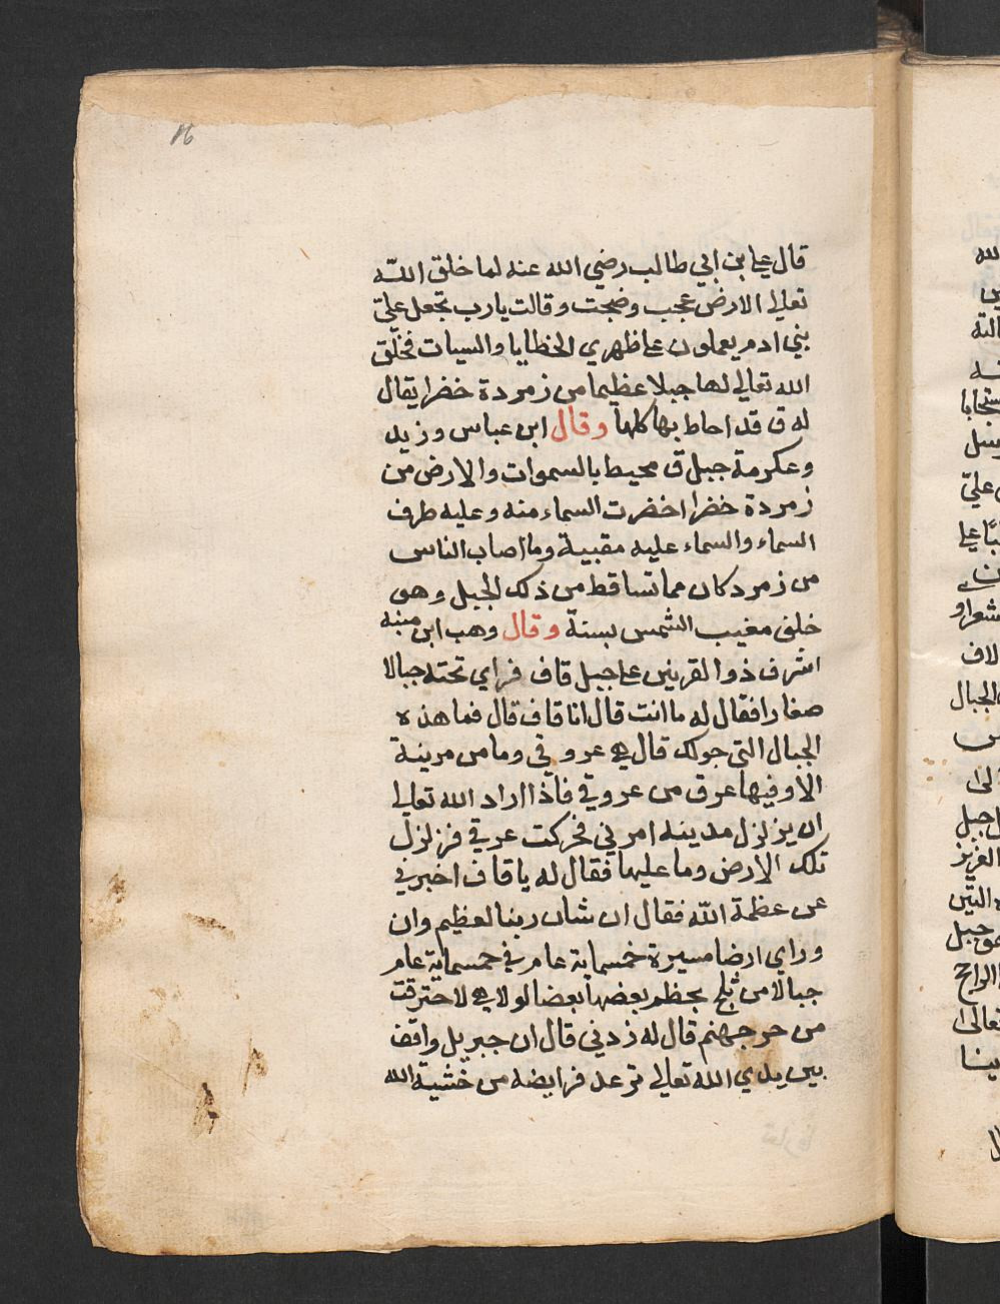 16
قال علي ابن ابي طالب رضي الله عنه لما خلق الله
تعالى الارض عجب وضجت وقالت يارب تجعل عليّ
بني ادم يعملون على ظهري الخطايا والسيات فخلق
الله تعالى لها جبلا عظيما من زمردة خضرا يقال
له ق قد احاط بها كلها وقال ابن عباس وزيد
وعكرمة جبل ق محيط بالسموات والارض من
زمردة خضرا اخضرت السماء منه وعليه طرف
السماء والسماء عليه مقبية وما اصاب الناس
من زمرد كان مما تساقط من ذلك الجبل وهو
خلف مغيب الشمس بسنة وقال وهب ابن منبه
اشرف ذوا القرنين على جبل قاف فراي تحته جبالا
صغارا فقال له ما انت قال انا قاف قال فما هذه
الجبال التي حولك قال هي عروقي وما من مدينة
الا وفيها عرق من عروقي فاذا اراد الله تعالى
ان يزلزل مدينه امرني فحركت عرقي فزلزل
تلك الارض وما عليها فقال له يا قاف اخبرني
عن عظمة الله فقال ان شان ربنا لعظيم وان
وراي ارضا مسيرة خمسماية عام في خمسماية عام
جبالا من ثلج يحطم بعضها بعضا لولا هي لاحترقت
من حر جهنم قال له زدني قال ان جبريل واقف
بين يدي الله تعالى ترعد فرايضه من خشية الله